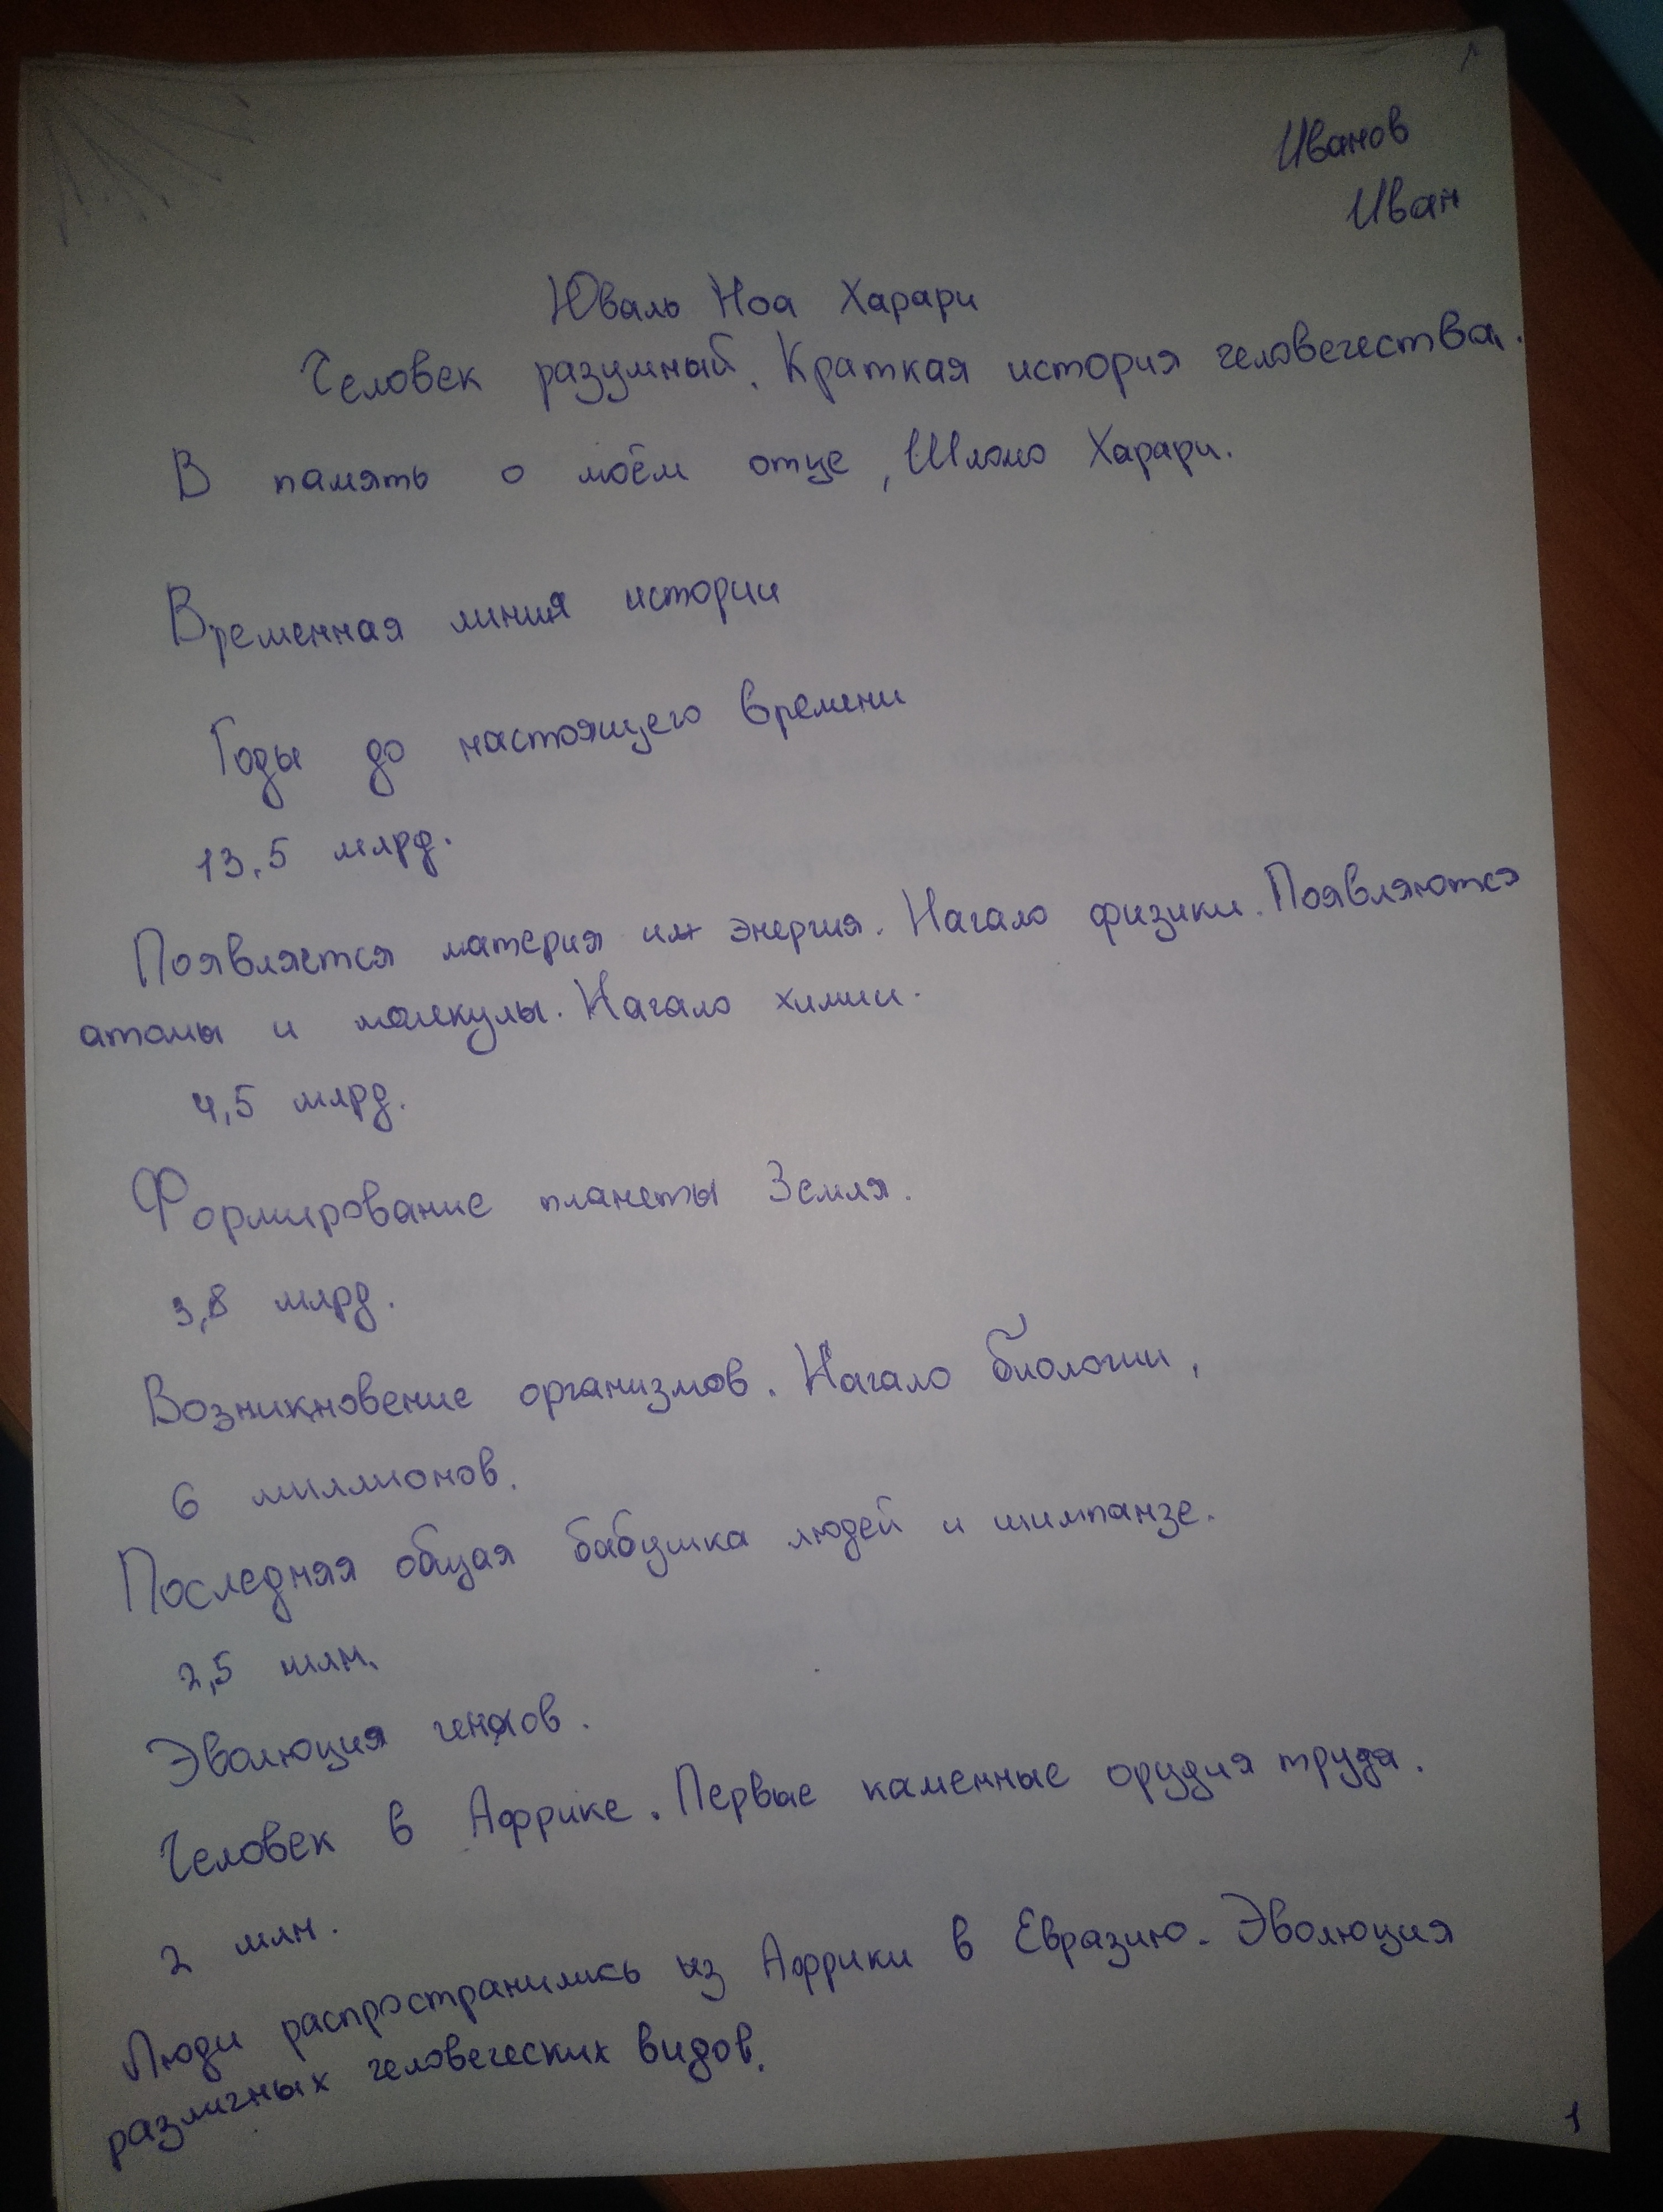 Иванов
Иван
Юваль Ноа Харари
Человек разумный. Краткая история человечества.
В память о моём отце, Шломо Харари.
Временная линия истории
Годы до настоящего времени
13,5 млрд.
Появляется материя энергия. Начало физики. Появляются
атомы и молекулы. Начало химии.
4,5 млрд.
Формирование планеты Земля.
3,8 млрд.
Возникновение организмов. Начало биологии.
6 миллионов.
Последняя общая бабушка людей и шимпанзе.
2,5 млн.
Эволюция
Человек в Африке. Первые каменные орудия труда.
2 млн.
Люди распространились из Африки в Евразию. Эволюция
различных человеческих видов.
1